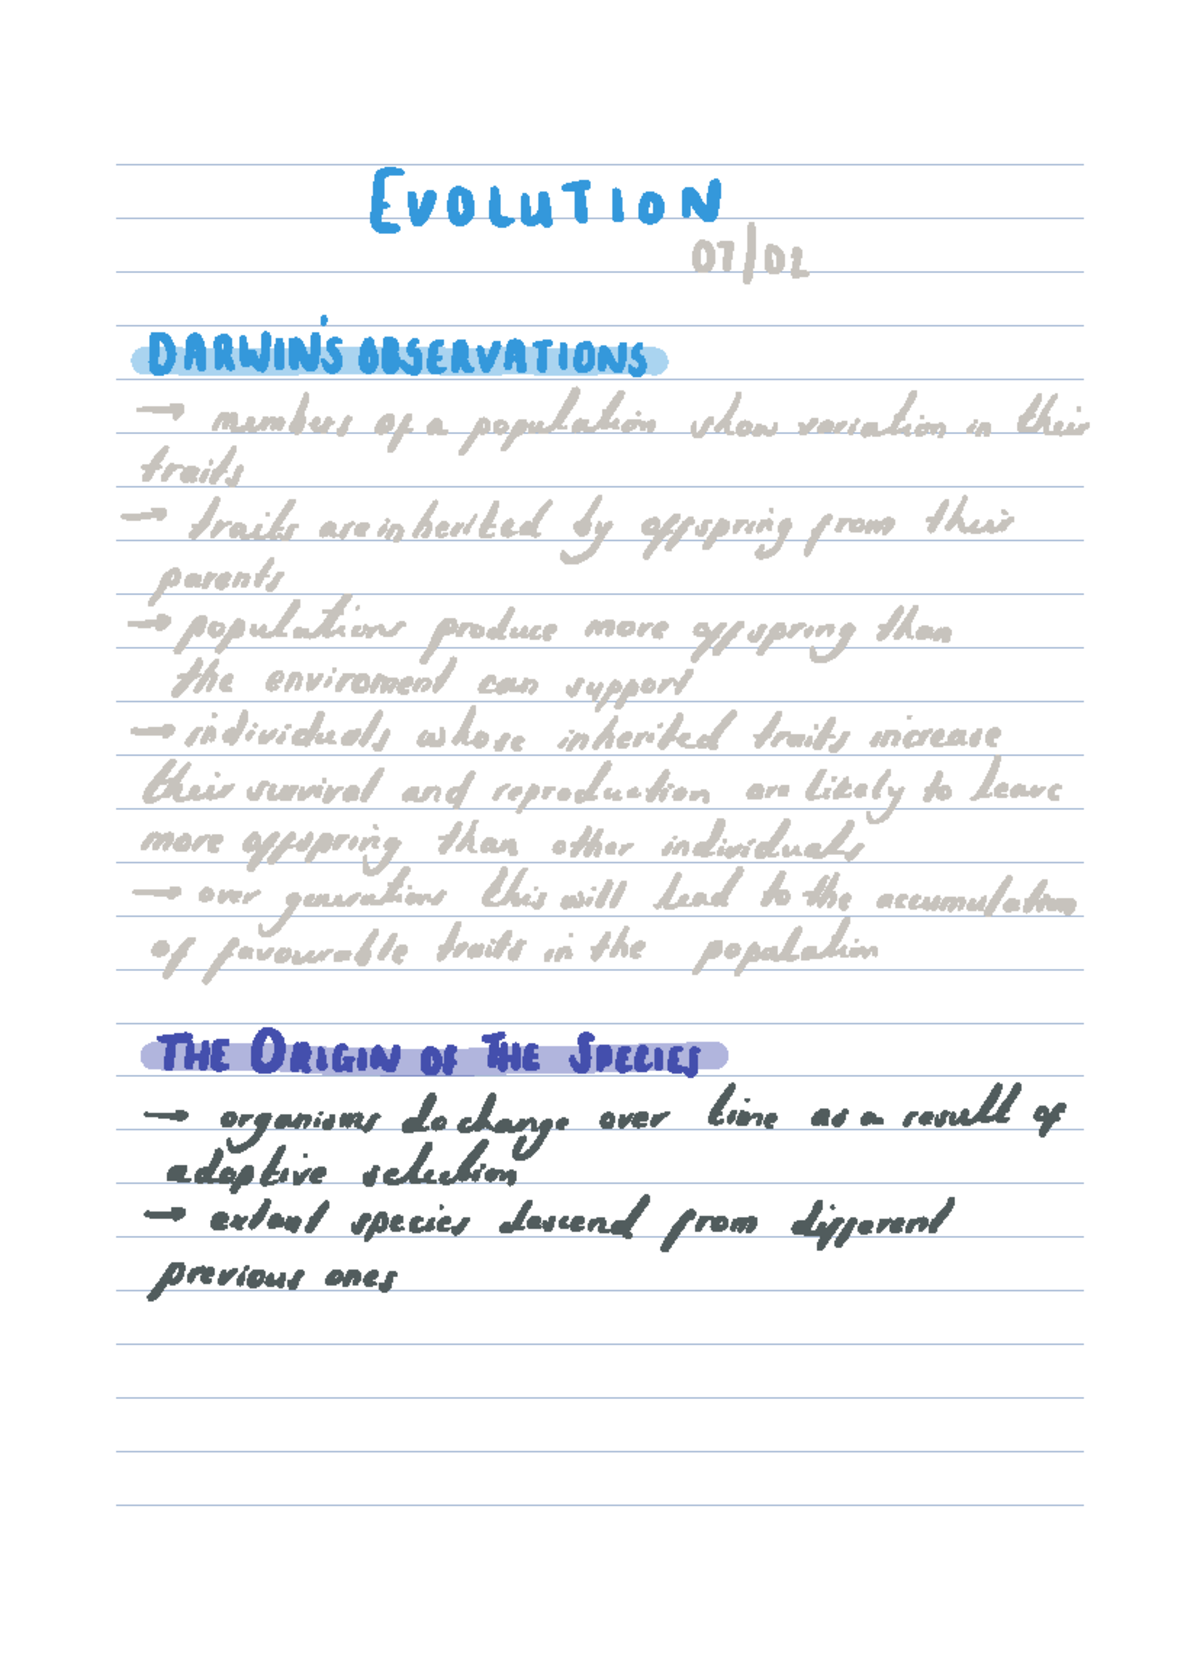 EVOLUTION
07/02
DARWIN'S OBSERVATIONS
→ members of a population show variation in their
traits
→ traits are inherited by offspring from their
parents
→ populations produce more offspring than
the enviroment can support
→ individuals whose inherited traits increase
their survival and reproduction are likely to leave
more offspring than other individuals
→ over generations this will lead to the accumulation
of favourable traits in the population
THE ORIGIN OF THE SPECIES
→ organisms do change over time as a result of
adaptive selection
→ extant species descend from different
previous ones